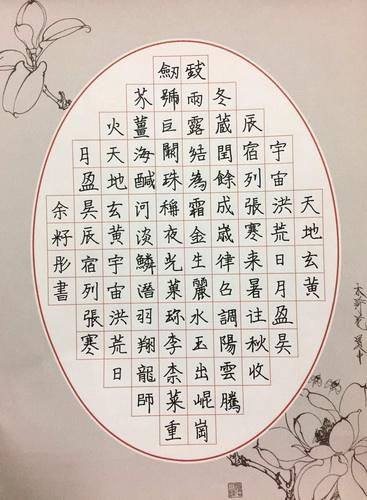 天地玄黃
宇宙洪荒日月盈昃
辰宿列張寒来暑往秋收
冬蔵閏餘成歲律吕調陽雲騰
致雨露結為霜金生麗水玉出崐崗
劒號巨闕珠稱夜光菓珍李柰菜重
芥薑海鹹河淡鱗潛羽翔龍師
火天地玄黃宇宙洪荒日
月盈昃辰宿列張寒
余籽彤書